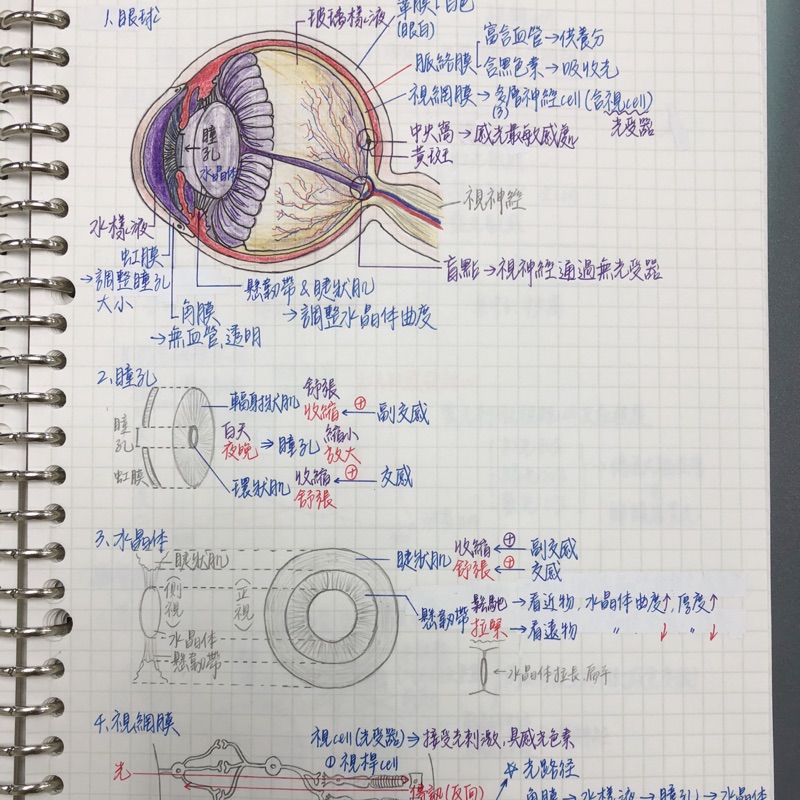 1.眼球
玻璃樣液
鞏膜 白色
(眼白)
脈絡膜 富含血管→供養分
含黑色素→吸收光
視網膜→多層神經cell(含視cell)
(3) 光受器
中央窩→感光最敏感處
黃斑
瞳孔
水晶体
視神經
盲點→視神經通過無光受器
水樣液
虹膜
→調整瞳孔
大小
角膜
→無血管、透明
懸韌帶&睫狀肌
→調整水晶体曲度
2.瞳孔
瞳孔
虹膜
輻射狀肌 舒張
收縮 ←⊕ 副交感
白天
夜晚 ⇒ 瞳孔 縮小
放大
環狀肌 收縮 ←⊕ 交感
舒張
3.水晶体
睫狀肌
(側視)
(正視)
水晶体
懸韌帶
睫狀肌 收縮 ←⊕ 副交感
舒張 ←⊕ 交感
懸韌帶 鬆弛→看近物,水晶体曲度↑,厚度↑
拉緊→看遠物 〃 ↓ 〃 ↓
←水晶体拉長、扁平
4.視網膜
視cell(光受器)⇒接受光刺激,具感光色素
①視桿cell
光
傳訊(反向)
光路徑
角膜→水樣液→瞳孔→水晶体